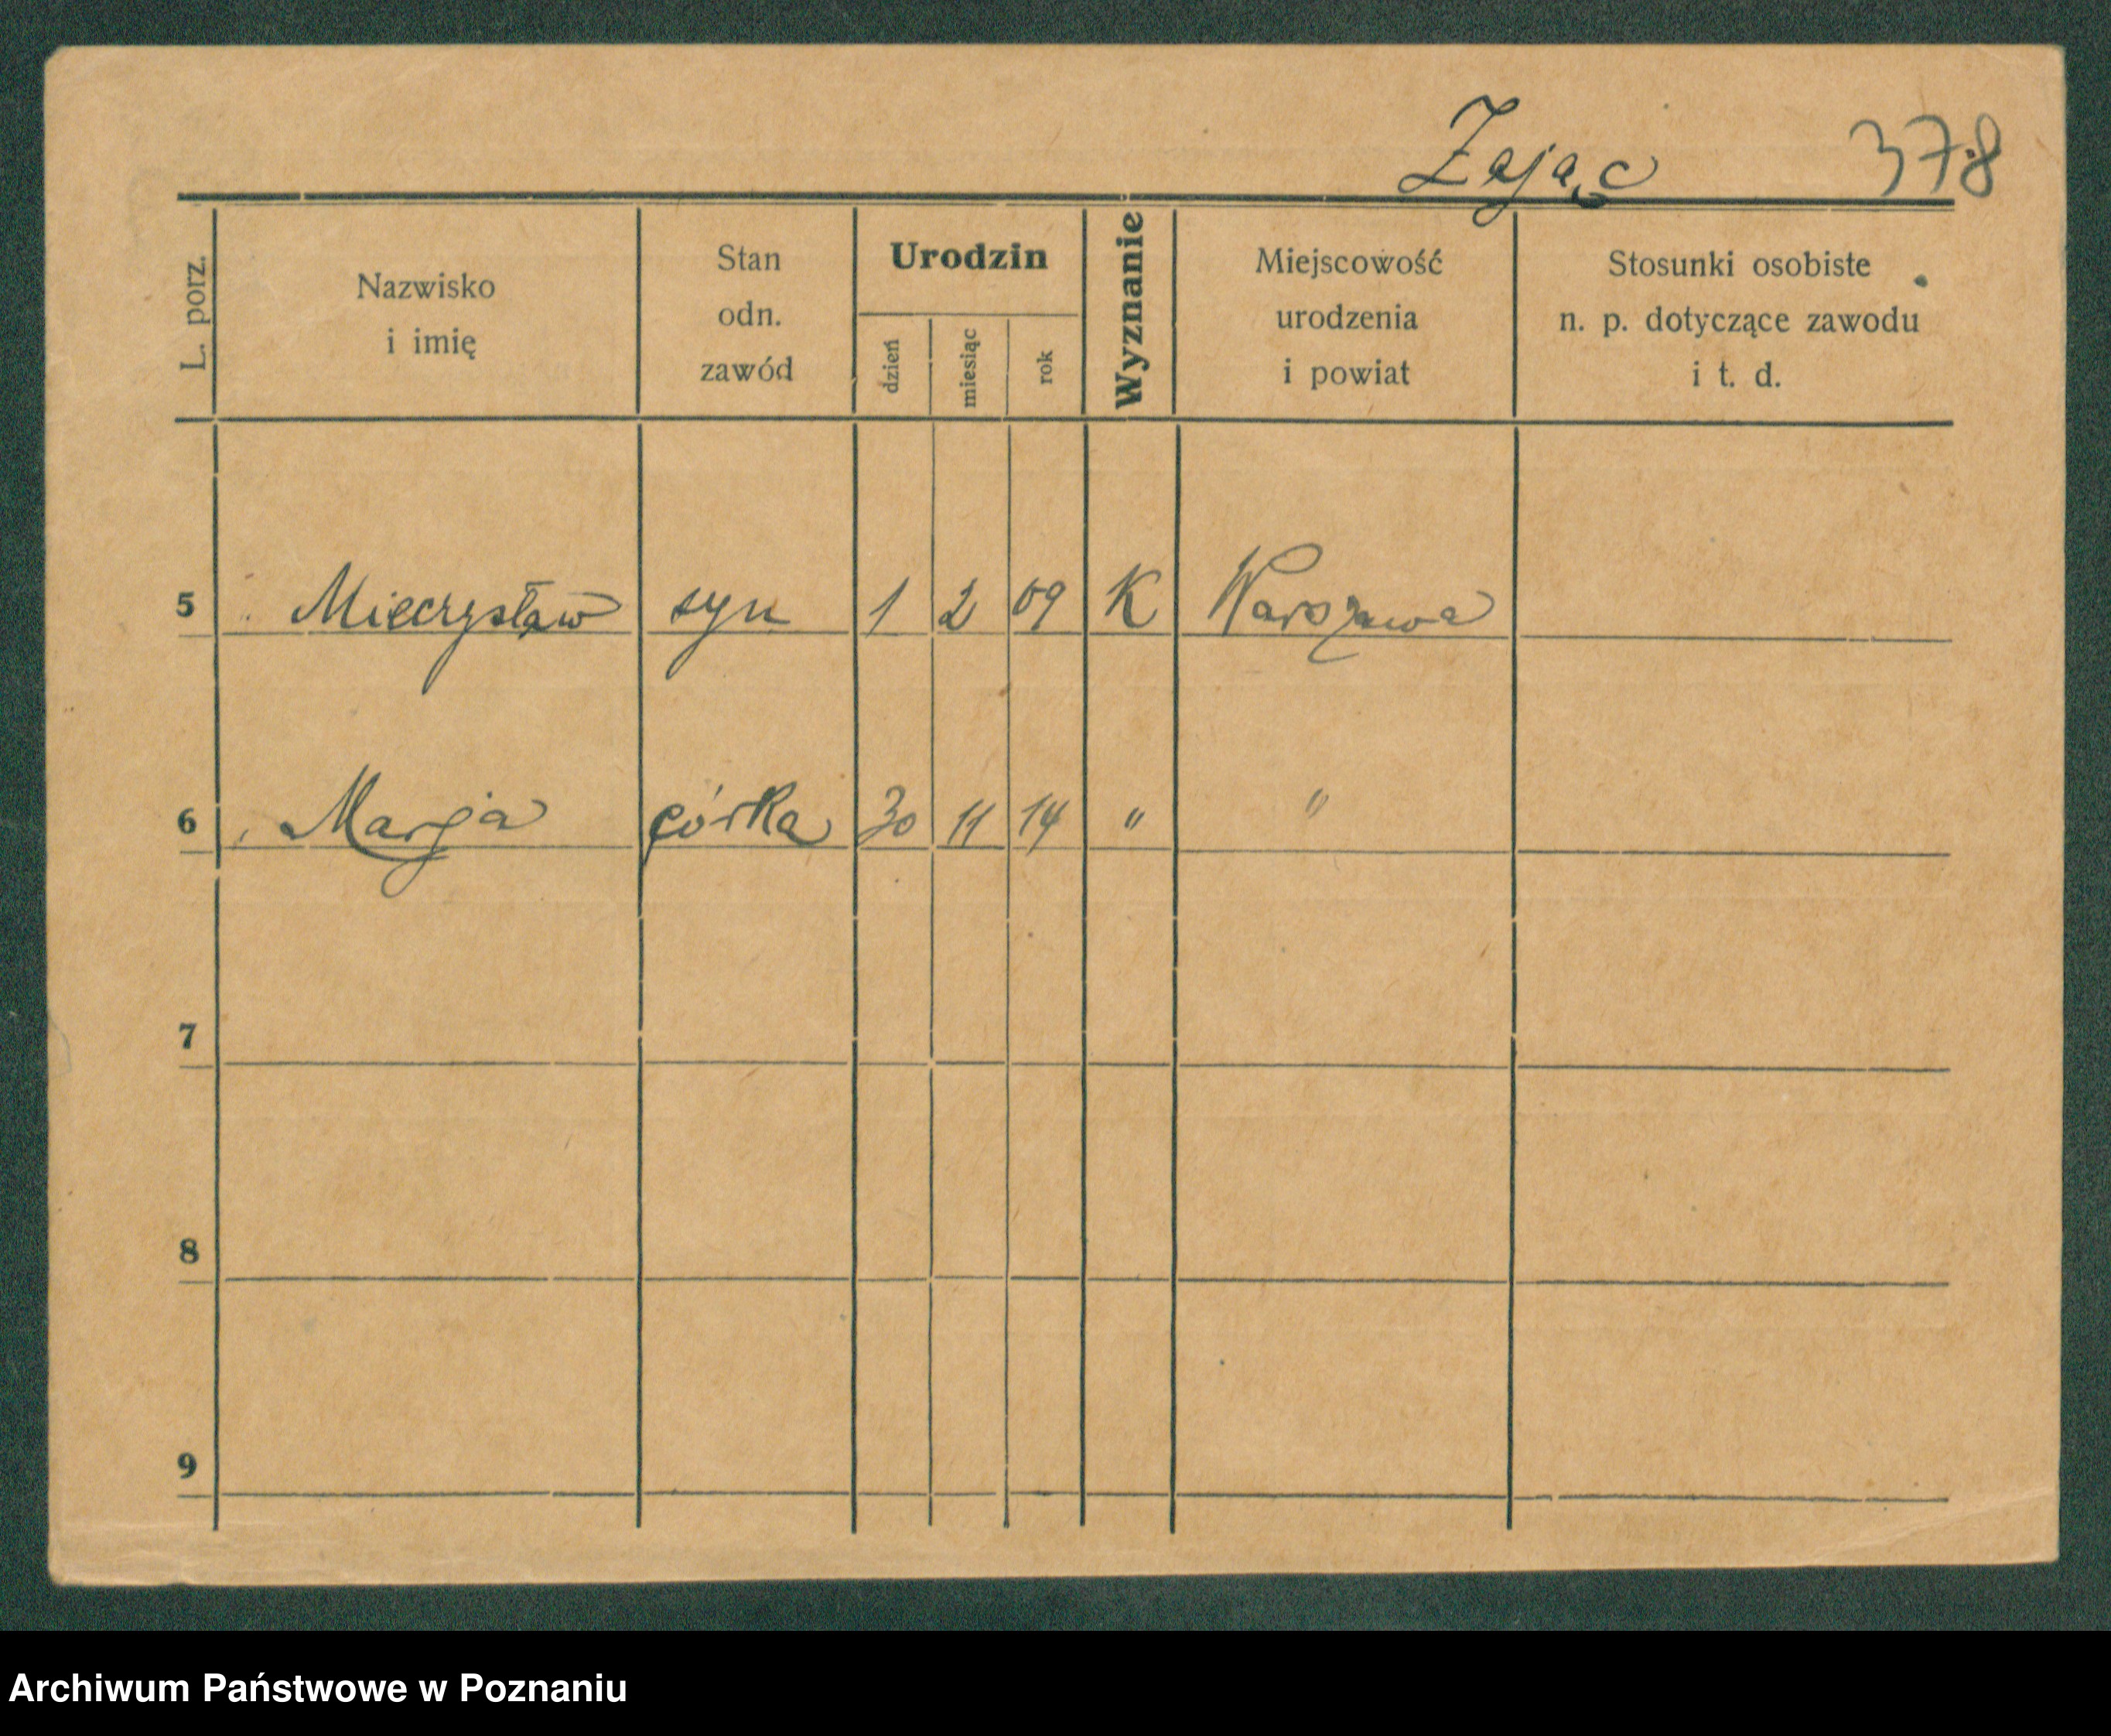 Zając 378
L. porz.
Nazwisko
i imię
Stan
odn.
zawód
Urodzin
dzień
miesiąc
rok
Wyznanie
Miejscowość
urodzenia
i powiat
Stosunki osobiste
n. p. dotyczące zawodu
i t. d.
5 Mieczysław syn 1 2 09 K Warszawa
6 Marja córka 30 11 14 " "
7
8
9
Archiwum Państwowe w Poznaniu